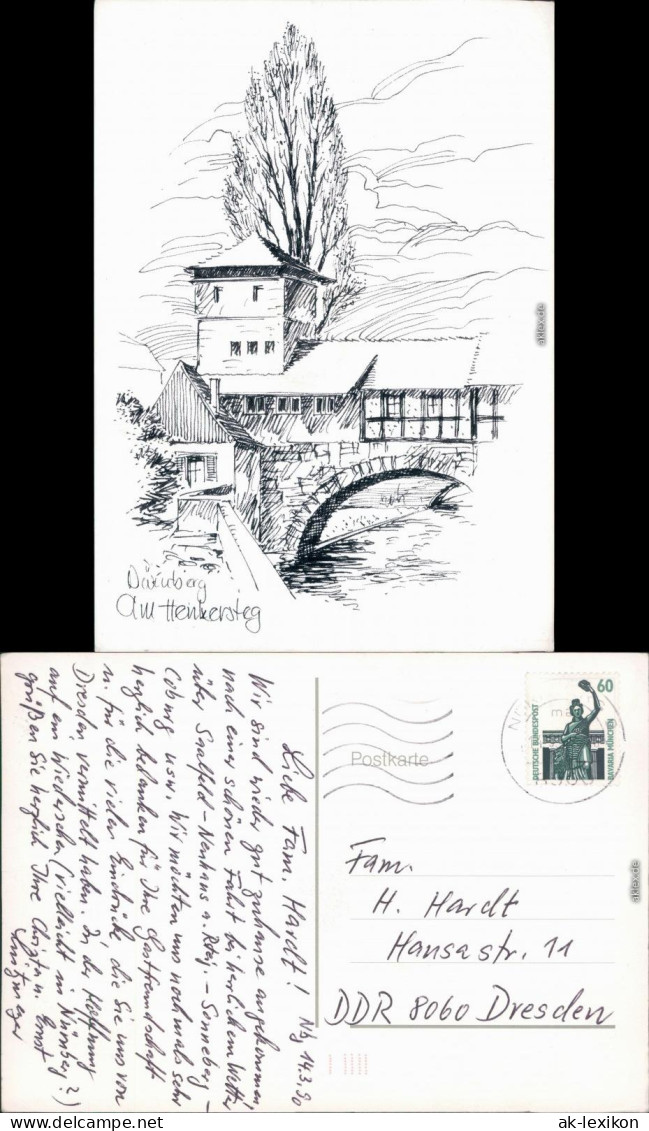 aklex.de
Nürnberg
Am Henkersteg
Nbg 14.3.90
Liebe Fam. Hardt!
Wir sind wieder gut zuhause angekommen,
nach einer schönen Fahrt bei herrlichem Wetter
über Saalfeld - Neuhaus a. Rwg. - Sonneberg -
Coburg usw. Wir möchten uns nochmals sehr
herzlich bedanken für Ihre Gastfreundschaft
u. für die vielen Eindrücke, die Sie uns von
Dresden vermittelt haben. In der Hoffnung
auf ein Wiedersehen (vielleicht in Nürnberg?)
grüßen Sie herzlich Ihre Christa u. Ernst
Postkarte
60
DEUTSCHE BUNDESPOST
BAVARIA MÜNCHEN
Fam.
H. Hardt
Hansastr. 11
DDR 8060 Dresden
aklex.de
ak-lexikon